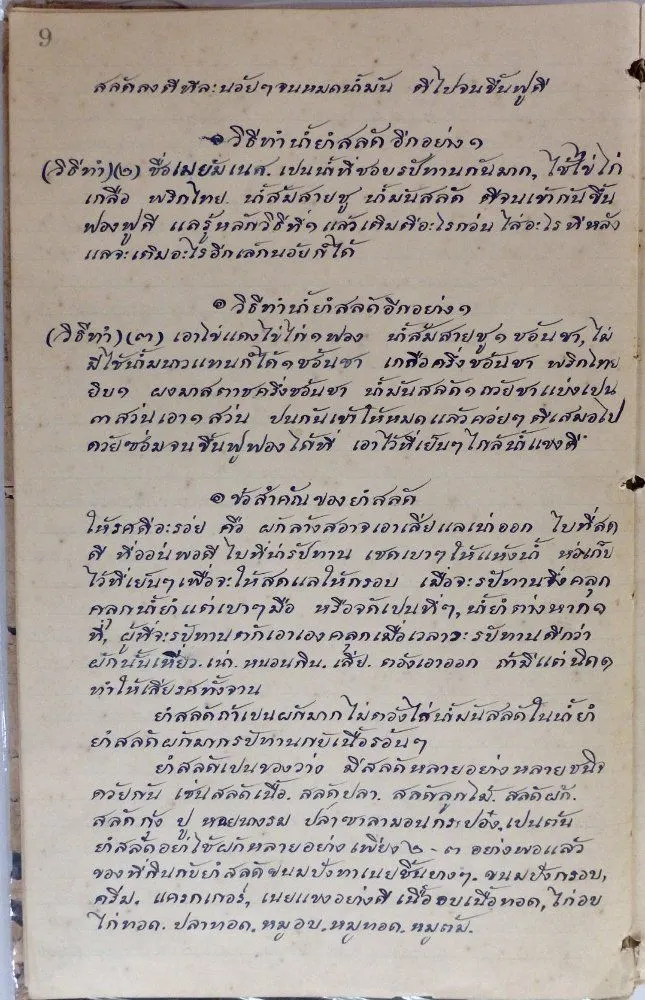 9
สลัดลงตีทีละนอัยๆจนหมดน้ำมัน ตีไปจนขึ้นฟูดี
๑ วิธีทำน้ำยำสลัดอีกอย่าง ๑
(วิธีทำ)(๒) ชื่อเมยัมเนศ. เปนน้ำที่ชอบรับทานกันมาก, ใช้ไข่ไก่
เกลือ พริกไทย. น้ำส้มสายชู น้ำมันสลัด ตีจนเข้ากันขึ้น
ฟองฟูดี แลรู้หลักวิธีที่๑ แล้วเติมตีอะไรก่อน ไส่อะไรทีหลัง
แลจะเติมอะไรอีกเล็กนอัยก็ได้
๑ วิธีทำน้ำยำสลัดอีกอย่าง ๑
(วิธีทำ)(๓) เอาไข่แดงไข่ไก่ ๑ ฟอง น้ำส้มสายชู ๑ ช้อนชา, ไม่
มีใช้น้ำมนาวแทนก็ได้ ๑ ช้อนชา เกลือครึ่งช้อนชา พริกไทย
ยิบ ๑ ผงมาสตาชครึ่งช้อนชา น้ำมันสลัด ๑ ถวัยชาแบ่งเปน
๓ สว่นเอา ๑ สว่น ปนกันเข้าให้หมดแล้วค่อยๆ ตีเสมอไป
ด้วยซ่อมจนขึ้นฟูฟองได้ที่ เอาไว้ที่เย็นๆใกล้น้ำแขงดี
๑ ข้อสำคัญของยำสลัด
ให้รศดีอะรอ่ย คือ ผักล้างสอาจเอาเสียแลเน่าออก ใบที่สด
ดี ที่ออ่นพอดี ใบที่น่ารับทาน เชดเบาๆให้แห้งน้ำ ห่อเก็บ
ไว้ที่เย็นๆเพื่อจะให้สดแลให้กรอบ เมื่อจะรับทานจึ่งคลุก
คลุกน้ำยำแต่เบาๆมือ หรือจัดเปนที่ๆ, น้ำยำต่างหาก ๑
ที่, ผู้ที่จะรับทานตักเอาเองคลุกเมื่อเวลาจะรับทานดีกว่า
ผักนั้นเหี่ยว. เน่า. หนอนกิน. เสีย. ต้องเอาออก ถ้ามีแต่นิด ๑
ทำให้เสียรศทั้งจาน
ยำสลัดถ้าเปนผักมากไม่ต้องใส่น้ำมันสลัดในน้ำยำ
ยำสลัดผักมากรับทานกับเนื้อร้อนๆ
ยำสลัดเปนของว่าง มีสลัดหลายอย่างหลายชนิจ
ด้วยกัน เช่นสลัดเนื้อ. สลัดปลา. สลัดลูกไม้. สลัดผัก.
สลัดกุ้ง ปู หอยนางรม ปลาซาลามอนกระป๋อง, เปนต้น
ยำสลัดอย่าใช้ผักหลายอย่างเพียง ๒ - ๓ อย่างพอแล้ว
ของที่กินกับยำสลัดขนมปังทาเนยชิ้นบางๆ. ขนมปังกรอบ,
ครีม. แครกเกอร์, เนยแขงอย่างดี เนื้ออบเนื้อทอด, ไก่อบ
ไก่ทอด. ปลาทอด. หมูอบ. หมูทอด. หมูต้ม.